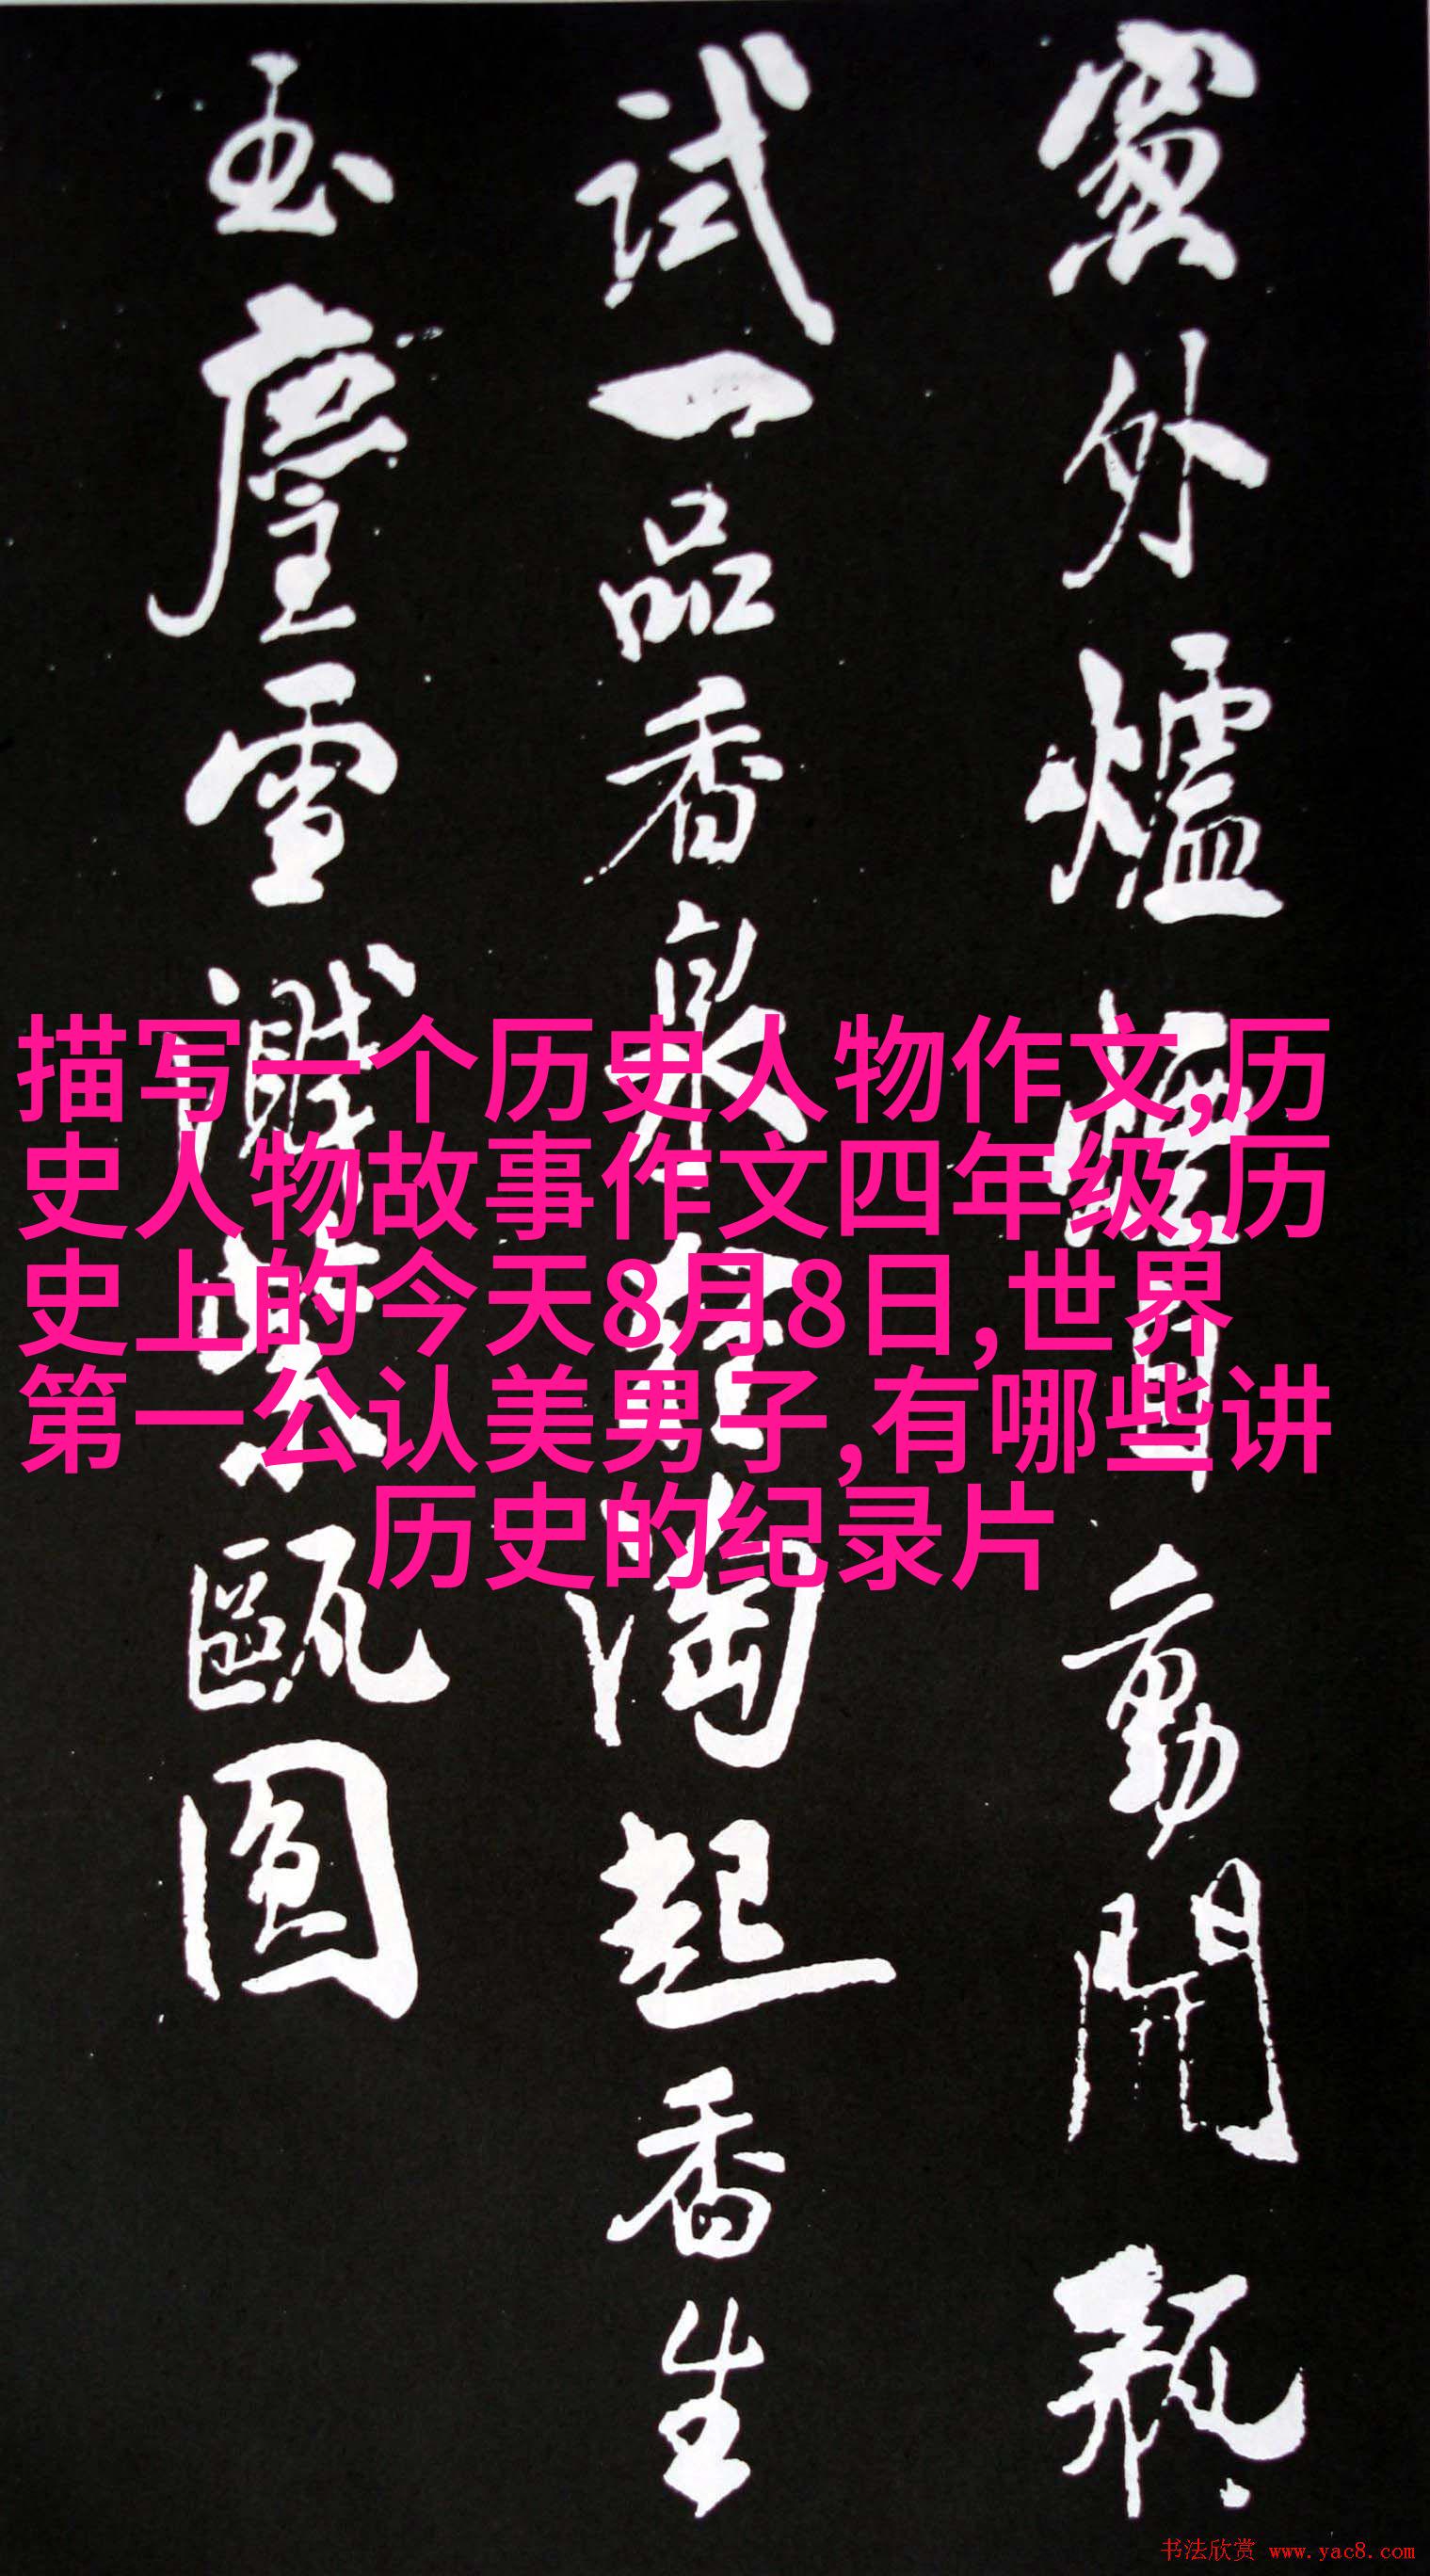 窻外爐煙自動開瓶
試一品香泉輕淘起香生
玉塵雪濺紫甌圓
描写一个历史人物作文,历
史人物故事作文四年级,历
史上的今天8月8日,世界
第一公认美男子,有哪些讲
历史的纪录片
书法欣赏 www.yac8.com